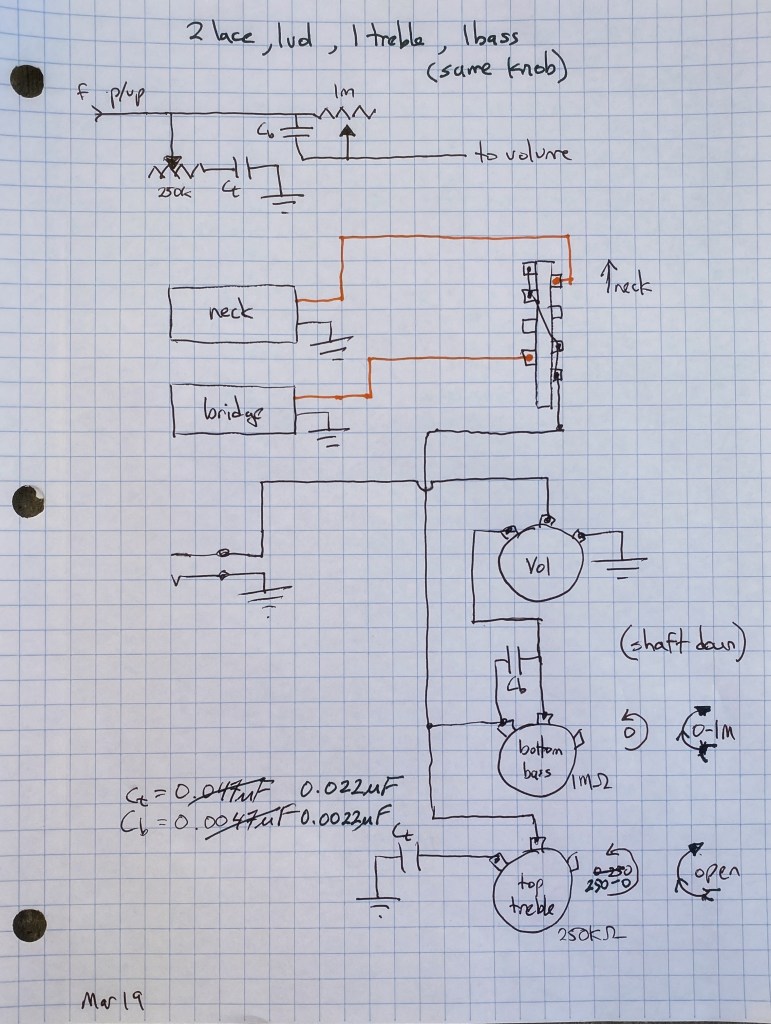 2 lace, 1vol, 1 treble, 1 bass
(same knob)
f p/up
1m
Cb
to volume
250k
Ct
↑neck
neck
bridge
Vol
(shaft down)
Cb
bottom
bass
1MΩ
0
0-1M
Ct = 0.047μF 0.022μF
Cb = 0.0047μF 0.0022μF
Ct
top
treble
250KΩ
0-250
250-0
open
Mar 19